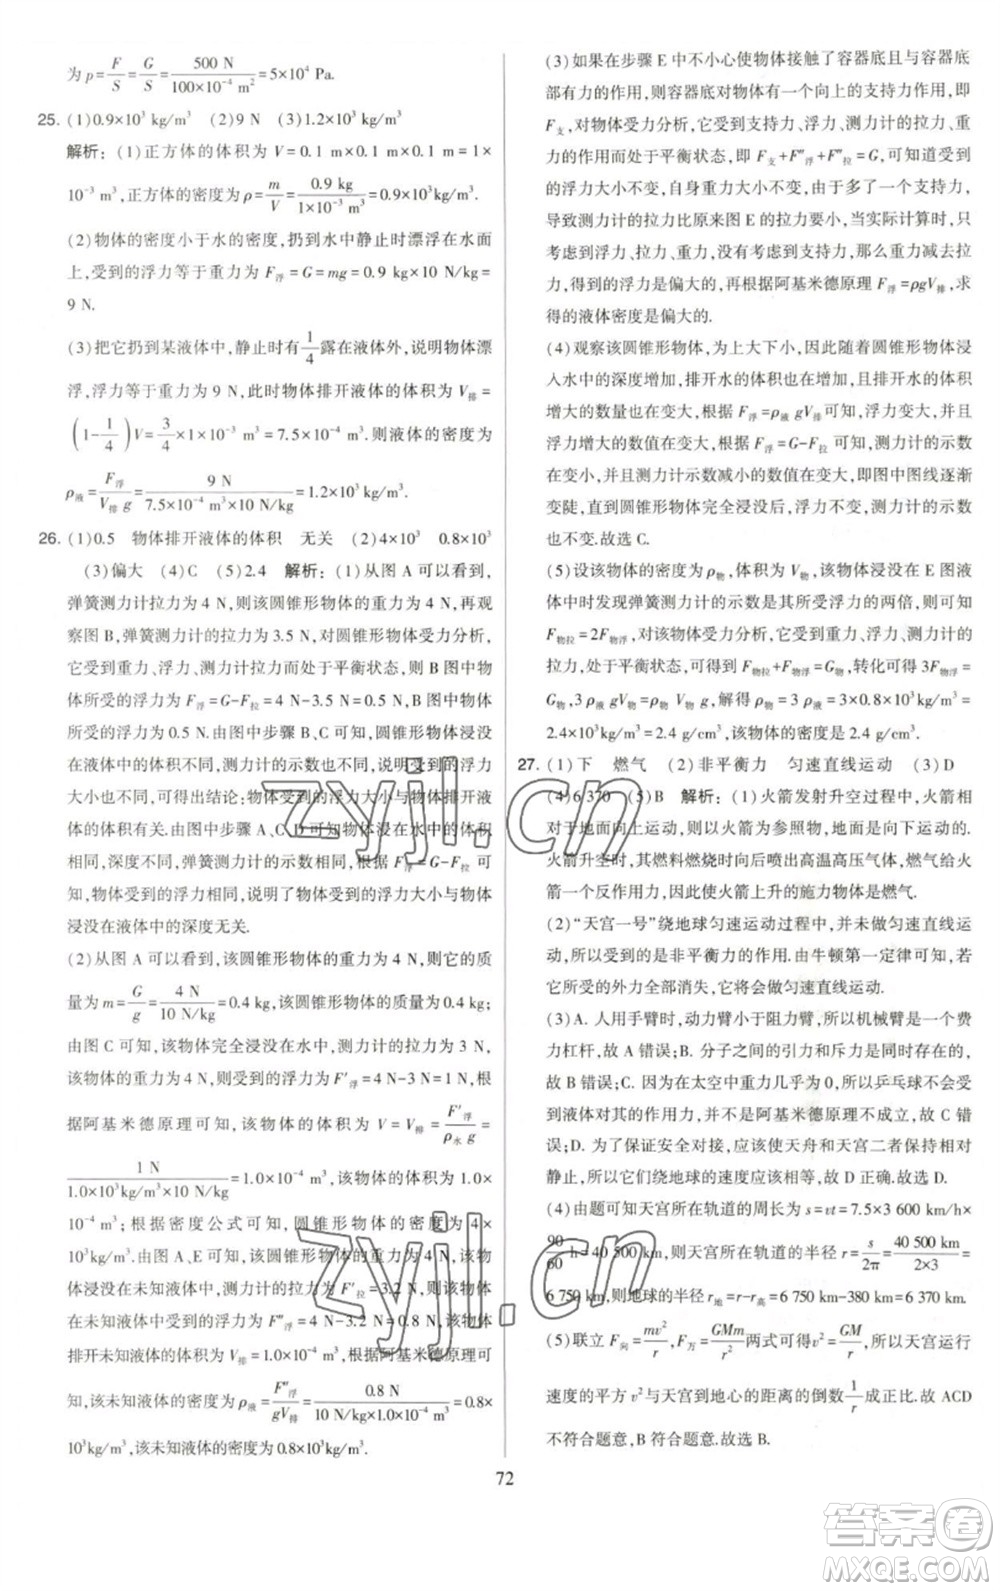 为 p=F/S=G/S=500 N/(100×10⁻⁴ m²)=5×10⁴ Pa.
25. (1)0.9×10³ kg/m³ (2)9 N (3)1.2×10³ kg/m³
解析：(1)正方体的体积 V=0.1 m×0.1 m×0.1 m=1×
10⁻³ m³,正方体的密度 ρ=m/V=0.9 kg/(1×10⁻³ m³)=0.9×10³kg/m³.
(2)物体的密度小于水的密度,扔到水中静止时漂浮在水面
上,受到的浮力等于重力为 F浮=G=mg=0.9 kg×10 N/kg=
9 N.
(3)把它扔到某液体中,静止时有1/4露在液体外,说明物体漂
浮,浮力等于重力等于 9 N,此时物体排开液体的体积为 V排=
(1-1/4)V=3/4×1×10⁻³ m³=7.5×10⁻⁴ m³.则液体的密度为
ρ液=F浮/(V排 g)=9 N/(7.5×10⁻⁴ m³×10 N/kg)=1.2×10³ kg/m³.
26. (1)0.5 物体排开液体的体积 无关 (2)4×10³ 0.8×10³
(3)偏大 (4)C (5)2.4 解析：(1)从图 A 可以看到,
弹簧测力计拉力为 4 N,则该圆锥形物体的重力为 4 N,再观
察图 B,弹簧测力计的拉力为 3.5 N,对圆锥形物体受力分析,
它受到重力、浮力、测力计拉力而处于平衡状态,则 B 图中物
体所受的浮力为 F浮=G-F拉=4 N-3.5 N=0.5 N,故 B 图中
所受的浮力为 0.5 N. 由图中步骤 B、C 可知,圆锥形物体浸没
在水中的体积不同,测力计的示数不同,说明物体受到的浮力
大小不同,故可以得出结论:浮力大小与物体排开
体的体积有关;由图中步骤 A、C、D 可知物体浸没在水中的深
度不同,但测力计的示数相同,根据 F浮=G-F拉 可知
物体受到的浮力相同,说明了物体受到的浮力大小与物体
浸没在液体中的深度无关.
(2)从图 A 可以看到,该圆锥形物体的重力为 4 N,则它的质
量为 m=G/g=4 N/(10 N/kg)=0.4 kg,该圆锥形物体的质量为 0.4 kg;
由图 C 可知,物体完全浸没在水中,测力计的拉力为 3 N,
该物体的重力为 4 N,则受到的浮力为 F′浮=4 N-3 N=1 N,根
据阿基米德原理可知,该物体的体积为 V=V排=F′浮/(ρ水 g)=
1 N/(1.0×10³kg/m³×10 N/kg)=1.0×10⁻⁴ m³,该物体的体积为 1.0×
10⁻⁴ m³;根据密度公式可知,圆锥形物体的密度为 4×
10³kg/m³;由图 A、E 可知,该圆锥形物体的重力为 4 N,该物
体浸没在未知液体中,测力计的拉力为 F′拉=3.2 N,则该物体
在未知液体中,受到的浮力为 F″浮=4 N-3.2 N=0.8 N,物体
排开未知液体的体积为 V排=1.0×10⁻⁴ m³.根据阿基米德原理可
知,该未知液体的密度为 ρ液=F″浮/(gV排)=0.8 N/(10 N/kg×1.0×10⁻⁴ m³)=0.8×
10³kg/m³,该未知液体的密度为 0.8×10³kg/m³.
(3)如果在步骤 E 中不小心使物体接触了容器底且与容器底
部有力的作用,则容器底对物体有一个向上的支持力作用,即
F支,对物体受力分析,它受到重力、浮力、测力计的拉力、支持
力的作用而处于平衡状态,即 F支+F″浮+F拉=G,可知道受到
的浮力大小不变,自身重力大小不变,由于多了一个支持力,
导致测力计的拉力比原来图 E 的拉力要小,当实际计算时,只
考虑到浮力、拉力、重力,而没有考虑到支持力,那么重力减去
拉力得到的浮力是偏大的,再根据阿基米德原理 F浮=ρgV排,求
得的液体密度是偏大的.
(4)观察该圆锥形物体,为上大下小,因此随着圆锥形物体浸
入水中的深度增加,排开水的体积也在增加,且排开水的体积
增大的数量也在变大,根据 F浮=ρ液 gV排 可知,浮力增大,并且
浮力增大的数值在变大,根据 F浮=G-F拉 可知,测力计的示数
在变小,并且测力计示数减小的数值在变大,即图中图线逐渐
变陡,直到圆锥形物体完全浸没后,浮力不变,测力计的示数
也不变.故选 C.
(5)设该物体的密度为 ρ物,体积为 V物,该物体浸没在 E 图液
体中时发现弹簧测力计的示数是物体所受浮力的两倍,则可得
F物拉=2F物浮,对该物体受力分析,它受到重力、浮力、测力计的
拉力,处于平衡状态,可得到 F物拉+F物浮=G物,转化可得 3F物浮=
G物,3ρ液 gV物=ρ物 V物 g,解得 ρ物=3ρ液=3×0.8×10³kg/m³=
2.4×10³kg/m³=2.4 g/cm³,该物体的密度是 2.4 g/cm³.
27. (1)下 燃气 (2)非平衡力 匀速直线运动 (3)D
(4)6 370 (5)B 解析：(1)火箭发射升空过程中,火箭相
对于地面向上运动,则以火箭为参照物,地面是向下运动的.
火箭升空时,其燃料燃烧时向后喷出高温高压气体,燃气给火
箭一个反作用力,因此使火箭上升的施力物体是燃气.
(2)“天宫一号”绕地球匀速运动过程中,并未做匀速直线运
动,所以受到的是非平衡力的作用.由牛顿第一定律可知,若
所受的外力全部消失,天宫一号将做匀速直线运动.
(3)A. 人用手臂时,动力臂小于阻力臂,所以机械臂是一个费
力杠杆,故 A 错误;B. 分子之间的引力和斥力是同时存在的,
故 B 错误;C. 因为在太空中重力几乎为 0,所以乒乓球受到
到液体对其的浮力几乎为 0,并不是阿基米德原理不成立,故 C 错
误;D. 为了保证安全对接,应该使天舟和天宫二者保持相对
静止,所以它们绕地球的速度应该相等,故 D 正确.故选 D.
(4)由题可知天宫所在轨道的周长为 s=vt=7.5×3 600 km/h×
90/60 h=40 500 km,则天宫所在轨道的半径 r=s/2π=40 500 km/(2×3)=
6 750 km,则地球的半径 r地=r-r高=6 750 km-380 km=6 370 km.
(5)联立 F向=mv²/r,F万=GMm/r²两式可得 v²=GM/r,所以天宫运行
速度的平方 v²与天宫到地心的距离的倒数1/r成正比.故 ACD
不符合题意,B 符合题意.故选 B.
72
zyjl.cn
zyjl.cn
答案圈
MXQE.COM